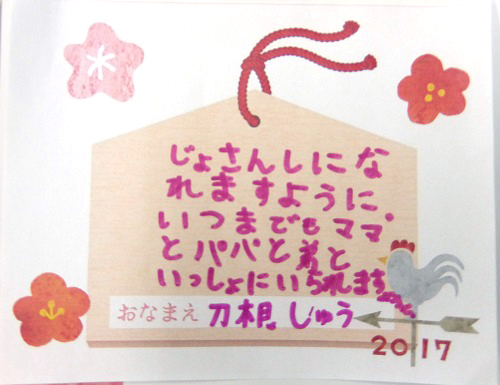 じょさんしにな
れますように。
いつまでもママ
とパパと弟と
いっしょにいられます
おなまえ 刀根 じゅう
2017